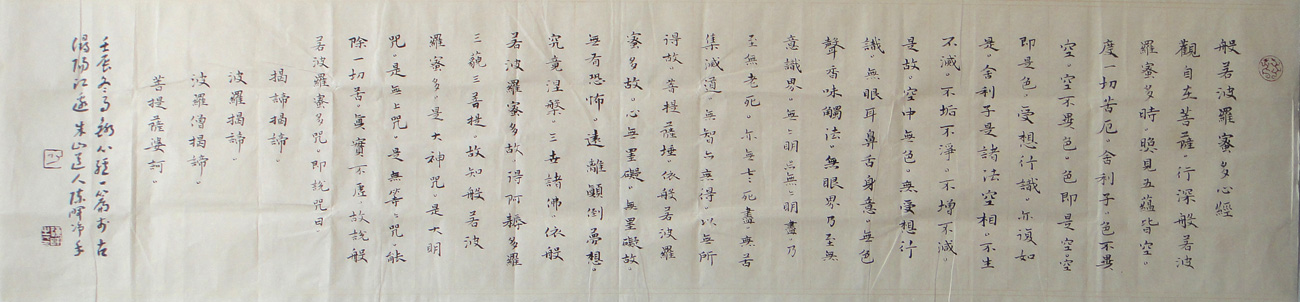 般若波羅蜜多心經
觀自在菩薩。行深般若波
羅蜜多時。照見五蘊皆空。
度一切苦厄。舍利子。色不異
空。空不異色。色即是空。空
即是色。受想行識。亦復如
是。舍利子是諸法空相。不生
不滅。不垢不淨。不增不減。
是故。空中無色。無受想行
識。無眼耳鼻舌身意。無色
聲香味觸法。無眼界乃至無
意識界。無無明亦無無明盡。乃
至無老死。亦無老死盡。無苦
集滅道。無智亦無得。以無所
得故。菩提薩埵。依般若波羅
蜜多故。心無罣礙。無罣礙故。
無有恐怖。遠離顛倒夢想。
究竟涅槃。三世諸佛。依般
若波羅蜜多故。得阿耨多羅
三藐三菩提。故知般若波
羅蜜多。是大神咒是大明
咒。是無上咒。是無等等咒。能
除一切苦。真實不虛。故說般
若波羅蜜多咒。即說咒曰
揭諦揭諦。
波羅揭諦。
波羅僧揭諦。
菩提薩婆訶。
壬辰冬月 心經一篇於古
潯陽江邊 山道人陳